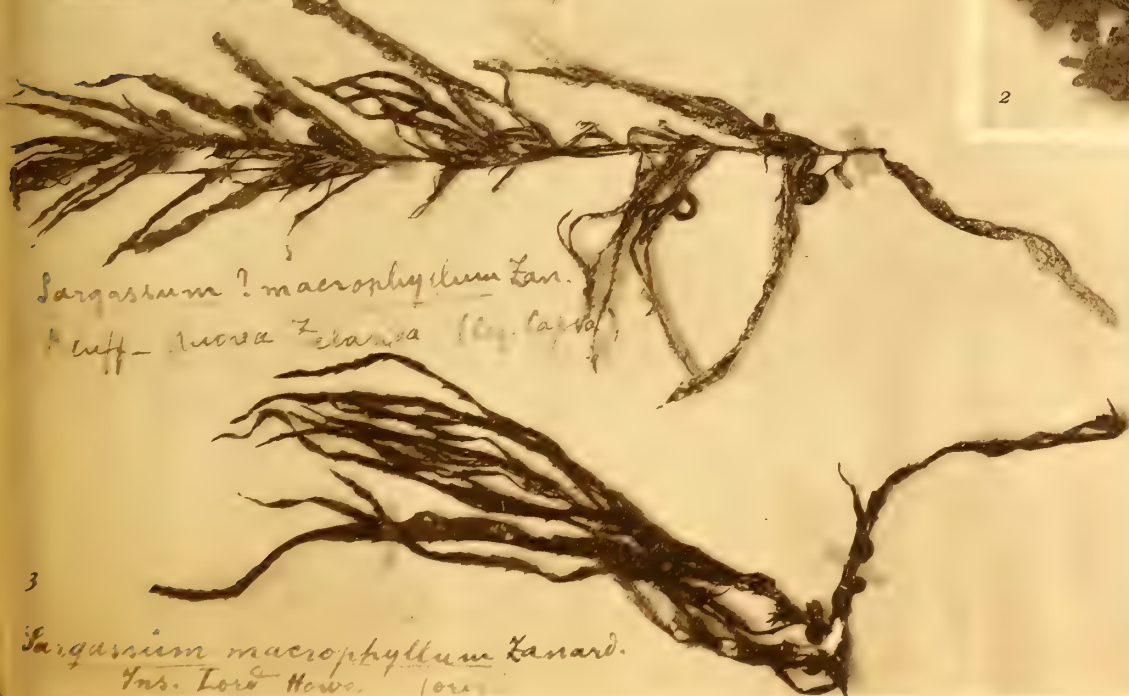 2
Sargassum ? macrophyllum Zan.
Bluff - Nuova Zelanda
3
Sargassum macrophyllum Zanard.
Ins. Lord Howe